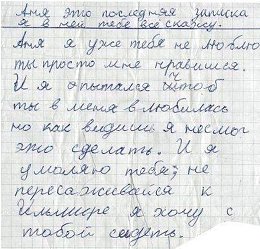 Аня это последняя записка
я в ней тебе всё скажу.
Аня я уже тебя не люблю
ты просто мне нравишся.
И я опытался чтоб
ты в меня влюбилась
но как видиш я несмог
это сделать. И я
умоляю тебя, не
пересаживайся к
Ильмире я хочу с
тобой сидеть.